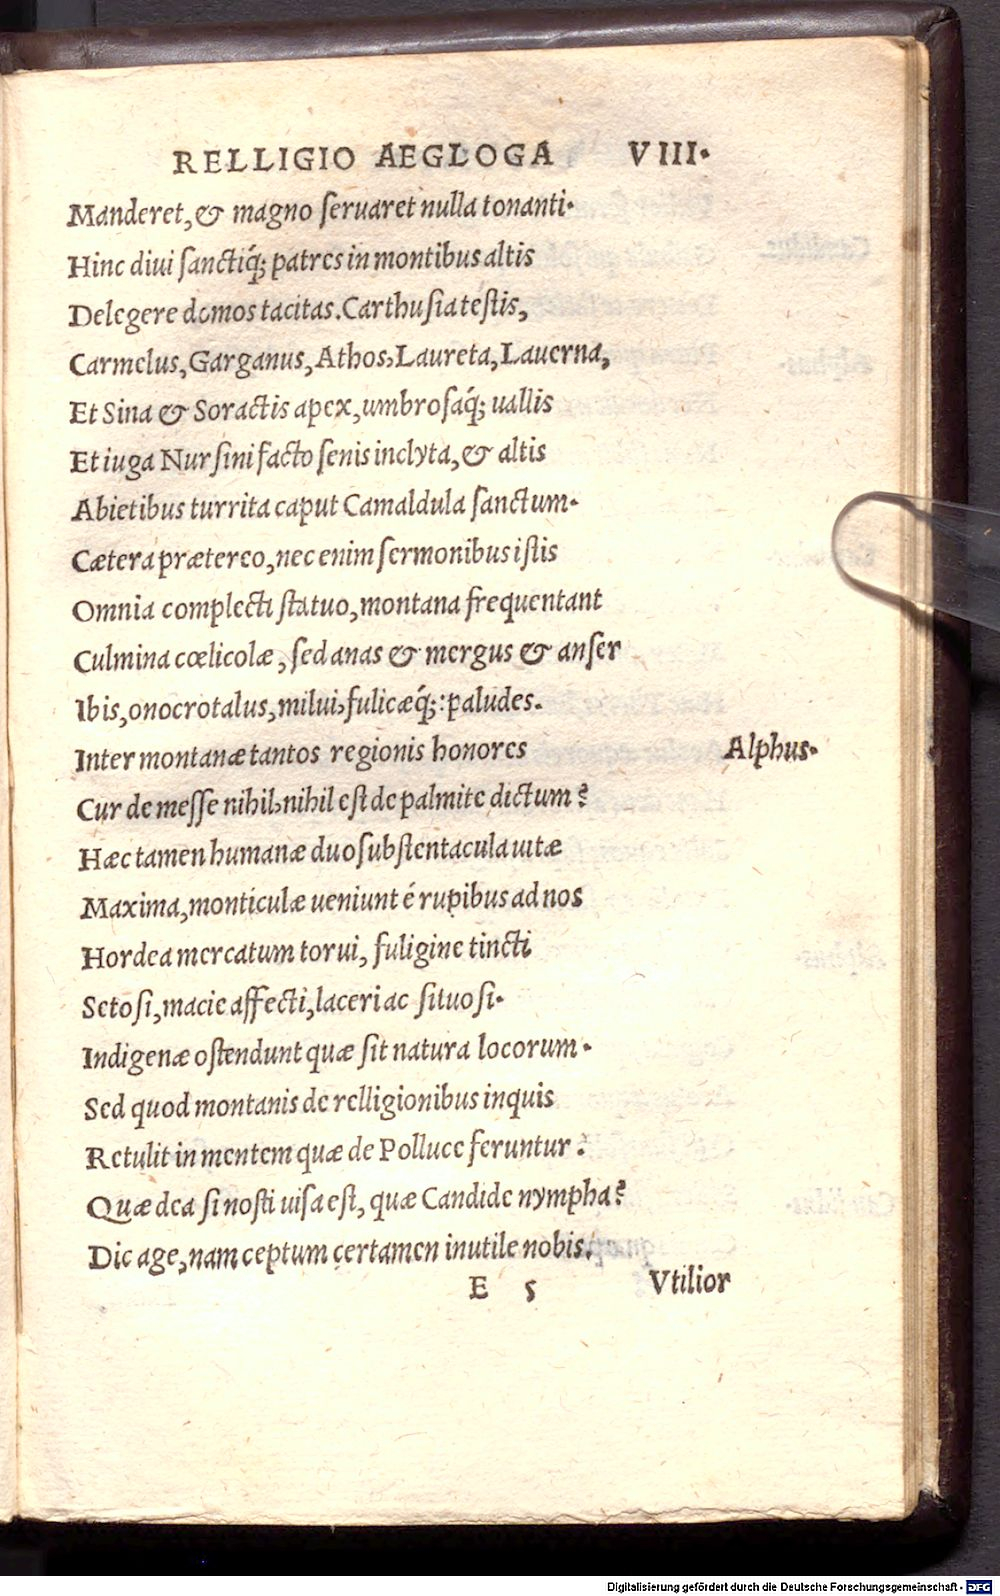 RELLIGIO AEGLOGA VIII.
Manderet, & magno seruaret nulla tonanti.
Hinc diui sanctiq́; patres in montibus altis
Delegere domos tacitas. Carthusia testis,
Carmelus, Garganus, Athos, Laureta, Lauerna,
Et Sina & Soractis apex, umbrosaq́; uallis
Et iuga Nursini facto senis inclyta, & altis
Abietibus turrita caput Camaldula sanctum.
Cætera prætereo, nec enim sermonibus istis
Omnia complecti statuo, montana frequentant
Culmina cœlicolæ, sed anas & mergus & anser
Ibis, onocrotalus, milui, fulicæq́;: paludes.
Inter montanæ tantos regionis honores Alphus.
Cur de messe nihil, nihil est de palmite dictum?
Hæc tamen humanæ duo substentacula uitæ
Maxima, monticulæ ueniunt é rupibus ad nos
Hordea mercatum torui, fuligine tincti
Setosi, macie affecti, laceri ac situosi.
Indigenæ ostendunt quæ sit natura locorum.
Sed quod montanis de relligionibus inquis
Retulit in mentem quæ de Polluce feruntur:
Quæ dea si nosti uisa est, quæ Candide nympha?
Dic age, nam ceptum certamen inutile nobis.
E 5 Vtilior
Digitalisierung gefördert durch die Deutsche Forschungsgemeinschaft - DFG